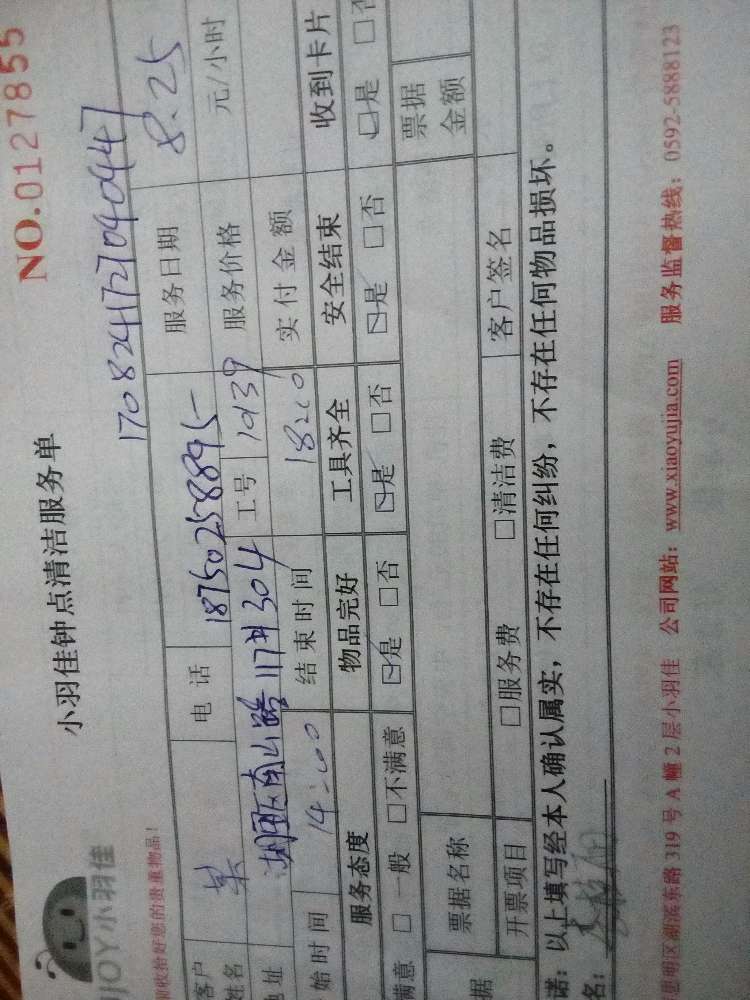 NO.0127855
小羽佳钟点清洁服务单
JOY小羽佳
收拾好您的贵重物品!
17082417210409447
客户姓名 电话 18750258895 服务日期 8.25
地址 湖 南山路117井304 工号 1039 服务价格 元/小时
始时间 14:00 结束时间 18:00 实付金额
服务态度 物品完好 工具齐全 安全结束 收到卡片
满意 □一般 □不满意 ☑是 □否 ☑是 □否 ☑是 □否 □是 □否
据 票据名称 票据金额
开票项目 □服务费 □清洁费 客户签名
诺:以上填写经本人确认属实,不存在任何纠纷,不存在任何物品损坏。
名:
思明区湖滨东路 319 号 A 幢 2 层小羽佳 公司网站:www.xiaoyujia.com 服务监督热线:0592-5888123